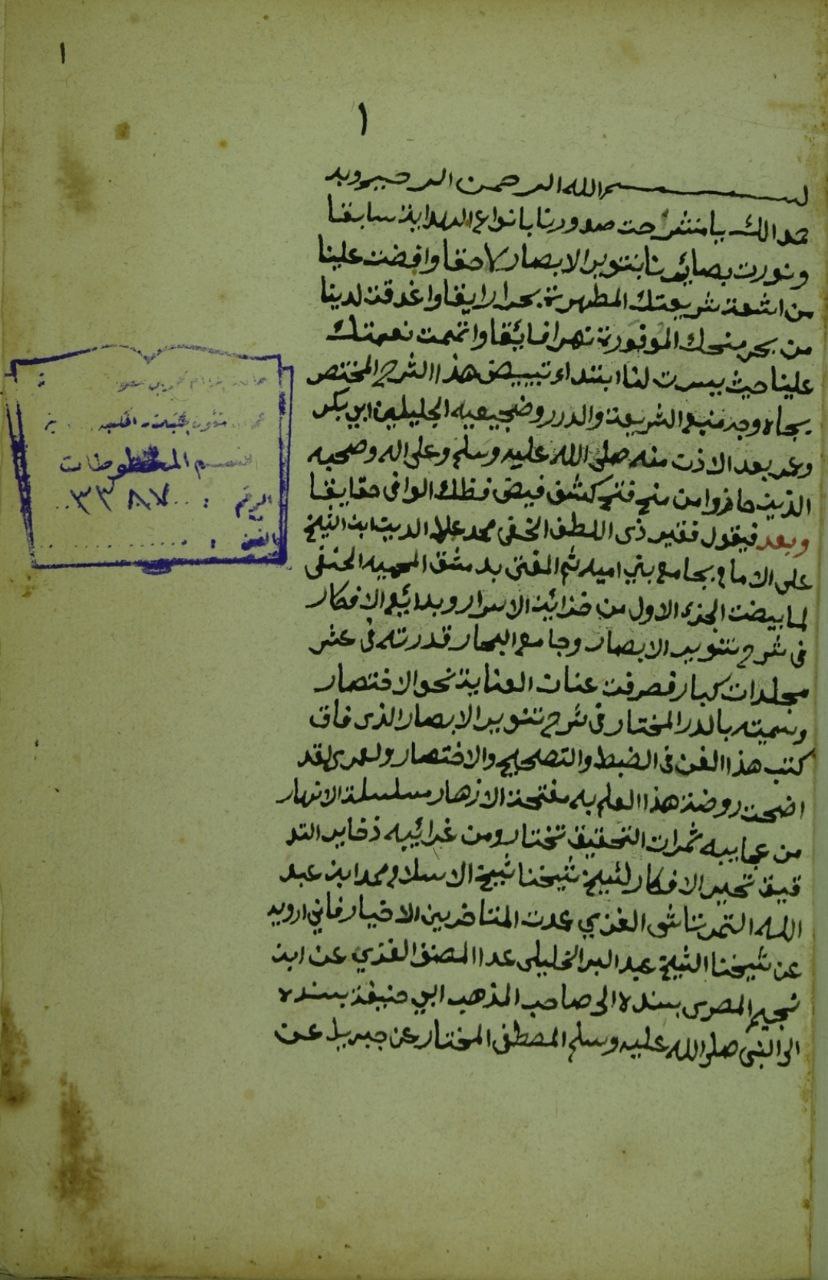 ١
١
بسم الله الرحمن الرحيم وبه
حمدا لك يا من شرحت صدورنا بانواع الهداية سابقا
ونورت بصائرنا بتنوير الابصار لاحقا وافضت علينا
من اشعة شريعتك المطهرة بحرا رايقا واغدقت لدينا
من بحر منحك الموفورة نهرا فايقا واتممت نعمتك
علينا حيث يسرت لنا ابتداء تبييض هذا الشرح المختصر
بجاه وجه منبع الشريعة والدرر وضجيعيه الجليلين ابي بكر
وعمر بعد الاذن منه صلى الله عليه وسلم وعلى اله وصحبه
الذين حازوا من منح فتح كشف فيض فظلك الوافى حقايقا
وبعد فيقول فقير ذى اللطف الخفى محمد علا الدين ابن الشيخ
على الامام بجامع بني اميه ثم المفتى بدمشق المحميه الحنفى
لما بيضت الجزء الاول من خزائن الاسرار وبدائع الافكار
فى شرح تنوير الابصار وجامع البحار قدرته فى عشر
مجلدات كبار فصرفت عنان العناية نحو الاختصار
وسميته بالدر المختار فى شرح تنوير الابصار الذى فاق
كتب هذا الفن فى الضبط والتصحيح والاختصار ولعمرى لقد
اضحت روضة هذا العلم به مفتحة الازهار مسلسلة الانهار
من عجايبه ثمرات التحقيق تختار ومن غرائبه ذخاير التد
قيق تحير الافكار لشيخ شيخنا شيخ الاسلام محمد ابن عبد
الله التمرتاشى الغزي عمدت المتاخرين الاخيار فاني ارويه
عن شيخنا الشيخ عبد البر الخليلى عدا المصنف الغزي عن ابن
نجيم المصرى بسنده الى صاحب المذهب ابي حنيفة بسنده
الى النبى صلى الله عليه وسلم المصطفى المختار عن جبريل عن
قسم المخطوطات
الرقم : ٣٣٨٧
الفن :